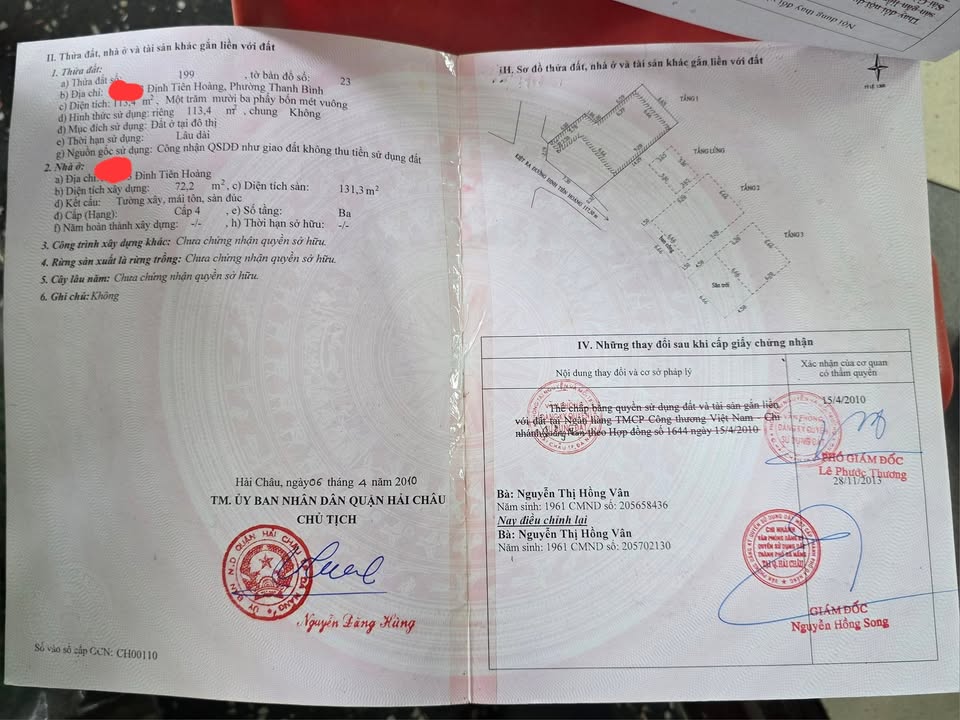 II. Thửa đất, nhà ở và tài sản khác gắn liền với đất
1. Thửa đất:
a) Thửa đất số: 199 , tờ bản đồ số: 23
b) Địa chỉ: Đinh Tiên Hoàng, Phường Thanh Bình
c) Diện tích: 113,4 m², Một trăm mười ba phẩy bốn mét vuông
d) Hình thức sử dụng: riêng 113,4 m², chung Không
đ) Mục đích sử dụng: Đất ở tại đô thị
e) Thời hạn sử dụng: Lâu dài
g) Nguồn gốc sử dụng: Công nhận QSDĐ như giao đất không thu tiền sử dụng đất
2. Nhà ở:
a) Địa chỉ: Đinh Tiên Hoàng
b) Diện tích xây dựng: 72,2 m², c) Diện tích sàn: 131,3 m²
d) Kết cấu: Tường xây, mái tôn, sàn đúc
đ) Cấp (Hạng): Cấp 4 , e) Số tầng: Ba
f) Năm hoàn thành xây dựng: -/- , h) Thời hạn sở hữu: -/-
3. Công trình xây dựng khác: Chưa chứng nhận quyền sở hữu.
4. Rừng sản xuất là rừng trồng: Chưa chứng nhận quyền sở hữu.
5. Cây lâu năm: Chưa chứng nhận quyền sở hữu.
6. Ghi chú: Không
Hải Châu, ngày 06 tháng 4 năm 2010
TM. ỦY BAN NHÂN DÂN QUẬN HẢI CHÂU
CHỦ TỊCH
Nguyễn Đăng Hùng
Số vào sổ cấp GCN: CH00110
Nội dung thay đổi
III. Sơ đồ thửa đất, nhà ở và tài sản khác gắn liền với đất
TẦNG 1
TẦNG LỬNG
TẦNG 2
TẦNG 3
KIỆT RA ĐƯỜNG ĐINH TIÊN HOÀNG
ban công
Sân trời
IV. Những thay đổi sau khi cấp giấy chứng nhận
Nội dung thay đổi và cơ sở pháp lý
Xác nhận của cơ quan
có thẩm quyền
Thế chấp bằng quyền sử dụng đất và tài sản gắn liền
với đất tại Ngân hàng TMCP Công thương Việt Nam – Chi
nhánh Quảng Nam theo Hợp đồng số 1644 ngày 15/4/2010
15/4/2010
PHÓ GIÁM ĐỐC
Lê Phước Thương
28/11/2013
Bà: Nguyễn Thị Hồng Vân
Năm sinh: 1961 CMND số: 205658436
Nay điều chỉnh lại
Bà: Nguyễn Thị Hồng Vân
Năm sinh: 1961 CMND số: 205702130
CHI NHÁNH
VĂN PHÒNG ĐĂNG KÝ
QUYỀN SỬ DỤNG ĐẤT
THÀNH PHỐ ĐÀ NẴNG
TẠI Q.HẢI CHÂU
GIÁM ĐỐC
Nguyễn Hồng Song